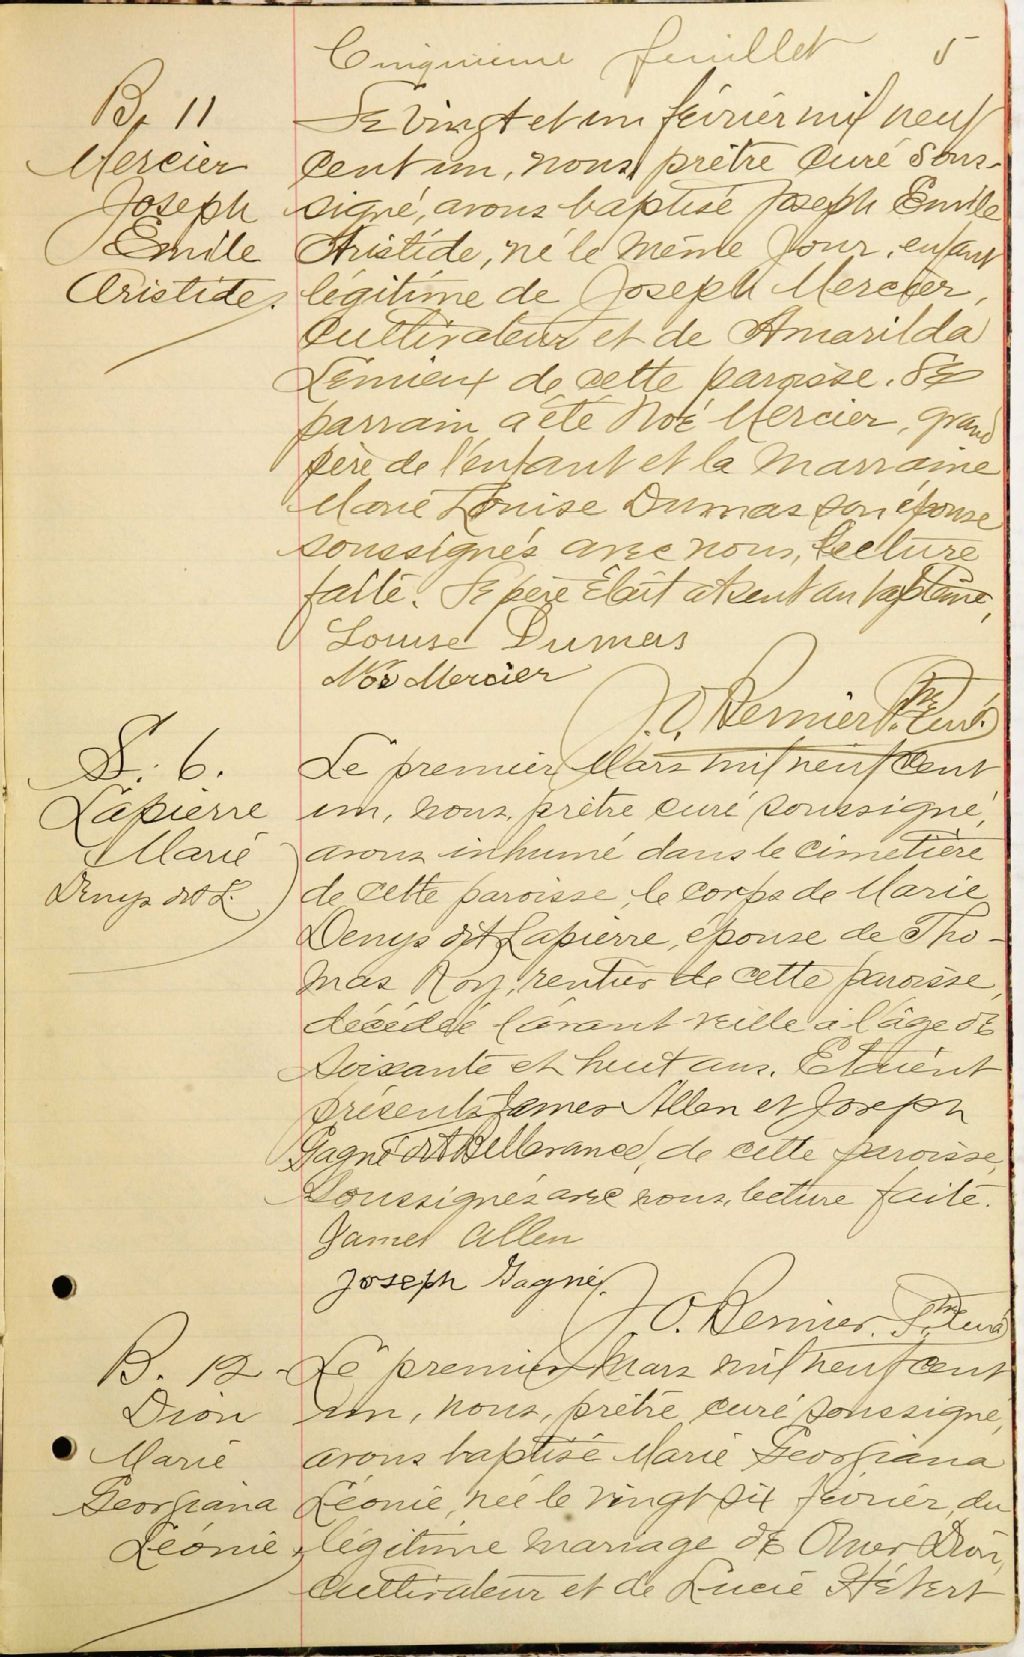 Cinquième feuillet 5
B. 11
Mercier
Joseph
Emile
Aristide.
Le vingt et un février mil neuf
cent un, nous, prêtre curé sous-
signé, avons baptisé Joseph Emile
Aristide, né le même jour, enfant
légitime de Joseph Mercier,
cultivateur et de Amarilda
Lemieux de cette paroisse. Le
parrain a été Noé Mercier, grand
père de l'enfant et la marraine
Marie Louise Dumas son épouse
soussignés avec nous, lecture
faite. Le père était absent au baptême,
Louise Dumas
Noé Mercier
J. O. Bernier Ptre Curé.
S. 6.
Lapierre
Marie
Denys dit L.
Le premier Mars mil neuf cent
un, nous, prêtre curé soussigné,
avons inhumé dans le cimetière
de cette paroisse, le corps de Marie
Denys dit Lapierre, épouse de Tho-
mas Roy, rentier de cette paroisse,
décédée l'avant veille à l'âge de
soixante et huit ans. Etaient
présents James Allen et Joseph
Gagné dit Bellavance, de cette paroisse,
soussignés avec nous, lecture faite.
James Allen
Joseph Gagné.
J. O. Bernier. Ptre Curé
B. 12
Dion
Marie
Georgiana
Léonie
Le premier Mars mil neuf cent
un, nous, prêtre, curé soussigné,
avons baptisé Marie Georgiana
Léonie, née le vingt six février, du
légitime mariage de Omer Dion,
cultivateur et de Lucie Hébert